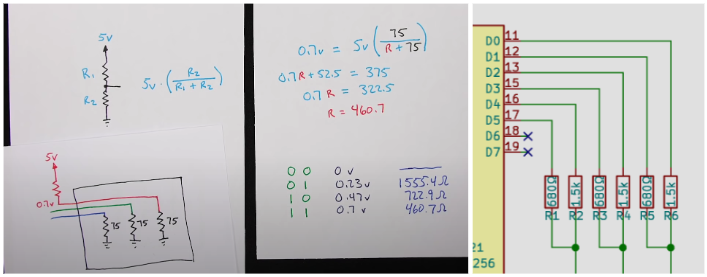 5v
R₁
R₂
5v · (R₂ / (R₁ + R₂))
5v
0.7v
75
75
75
0.7v = 5v (75 / (R + 75))
0.7R + 52.5 = 375
0.7R = 322.5
R = 460.7
0 0 0v
0 1 0.23v 1555.4Ω
1 0 0.47v 722.9Ω
1 1 0.7v 460.7Ω
D0 11
D1 12
D2 13
D3 15
D4 16
D5 17
D6 18
D7 19
680Ω 1.5k 680Ω 1.5k 680Ω 1.5k
R1 R2 R3 R4 R5 R6
21
256